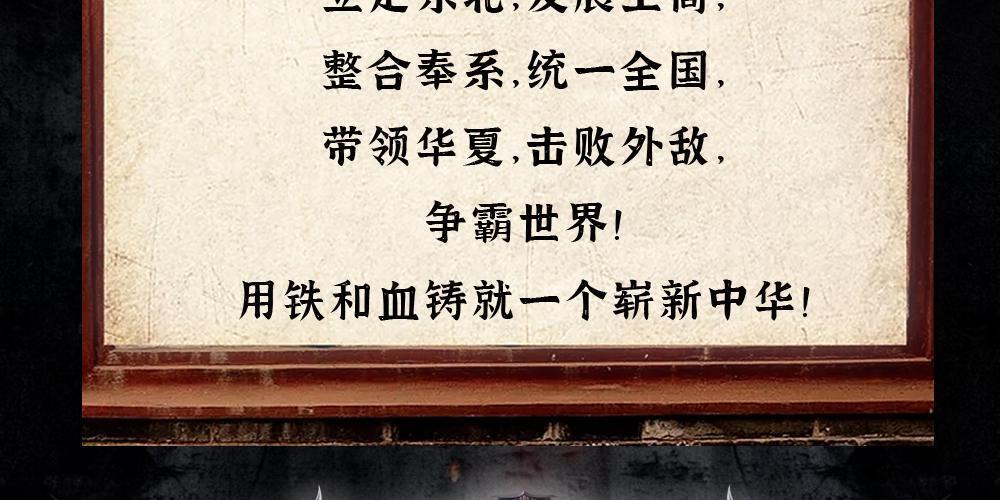 立足东北,发展工商,
整合奉系,统一全国,
带领华夏,击败外敌,
争霸世界!
用铁和血铸就一个崭新中华!